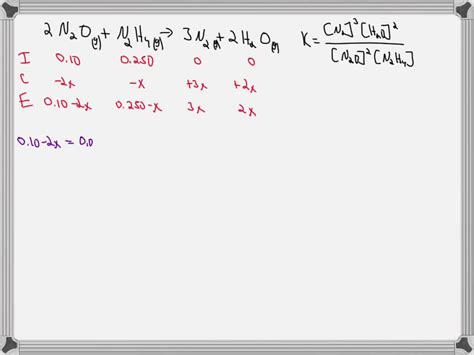 2 N₂O(g) + N₂H₄(g) → 3 N₂(g) + 2 H₂O(g) K = [N₂]³[H₂O]² / [N₂O]²[N₂H₄]
I 0.10 0.250 0 0
C -2x -x +3x +2x
E 0.10-2x 0.250-x 3x 2x
0.10-2x = 0.0